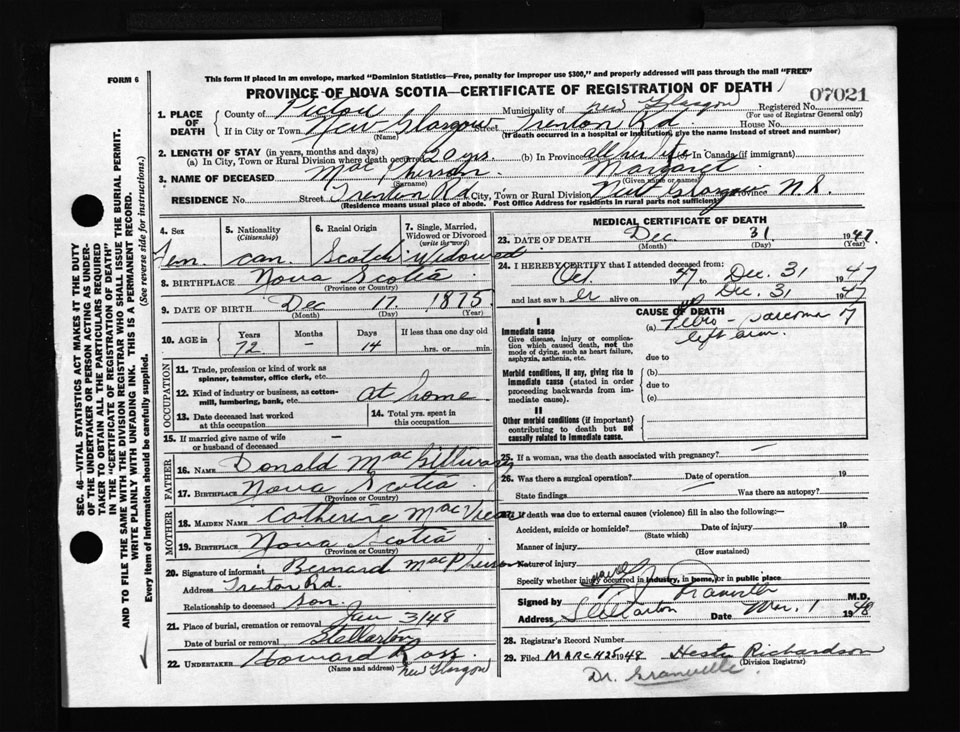 FORM 6
This form if placed in an envelope, marked "Dominion Statistics—Free, penalty for improper use $300," and properly addressed will pass through the mail "FREE"
PROVINCE OF NOVA SCOTIA—CERTIFICATE OF REGISTRATION OF DEATH
07021
1. PLACE OF DEATH
County of Pictou Municipality of New Glasgow Registered No.
(For use of Registrar General only)
If in City or Town, New Glasgow Street Trenton Rd House No.
(Name) (If death occurred in a hospital or institution, give the name instead of street and number)
2. LENGTH OF STAY (in years, months and days)
(a) In City, Town or Rural Division where death occurred 20 yrs. (b) In Province all her life (c) In Canada (if immigrant)
3. NAME OF DECEASED MacPherson Margaret
(Surname) (Given name or names)
RESIDENCE No. Street Trenton Rd City, Town or Rural Division New Glasgow Province N.S.
(Residence means usual place of abode. Post Office Address for residents in rural parts not sufficient)
4. Sex Fem.
5. Nationality (Citizenship) Can.
6. Racial Origin Scotch
7. Single, Married, Widowed or Divorced (write the word) Widowed
8. BIRTHPLACE Nova Scotia
(Province or Country)
9. DATE OF BIRTH Dec 17. 1875.
(Month) (Day) (Year)
10. AGE in Years Months Days If less than one day old
72 – 14 hrs. or min.
OCCUPATION
11. Trade, profession or kind of work as spinner, teamster, office clerk, etc.
12. Kind of industry or business, as cotton-mill, lumbering, bank, etc. at home
13. Date deceased last worked at this occupation
14. Total yrs. spent in this occupation
15. If married give name of wife or husband of deceased —
FATHER
16. NAME Donald MacGillivary
17. BIRTHPLACE Nova Scotia
(Province or Country)
MOTHER
18. MAIDEN NAME Catherine
19. BIRTHPLACE Nova Scotia
(Province or Country)
20. Signature of informant Bernard MacPherson
Address Trenton Rd.
Relationship to deceased Son.
21. Place of burial, cremation or removal Jan 3/48
Date of burial or removal Stellarton
22. UNDERTAKER Howard Ross
(Name and address) New Glasgow
MEDICAL CERTIFICATE OF DEATH
23. DATE OF DEATH Dec. 31 1947.
(Month) (Day) (Year)
24. I HEREBY CERTIFY that I attended deceased from:
Oct. 1947 to Dec. 31 1947
and last saw her alive on Dec. 31 1947
CAUSE OF DEATH
I
Immediate cause
Disease, injury or complication which caused death, not the mode of dying, such as heart failure, asphyxia, asthenia, etc.
(a) Fibro-sarcoma of
left arm.
due to
Morbid conditions, if any, giving rise to immediate cause (stated in order proceeding backwards from immediate cause).
(b)
due to
(c)
II
Other morbid conditions (if important) contributing to death but not causally related to immediate cause.
25. If a woman, was the death associated with pregnancy?
26. Was there a surgical operation? Date of operation 19
State findings Was there an autopsy?
27. If death was due to external causes (violence) fill in also the following:—
Accident, suicide or homicide? Date of injury 19
(State which)
Manner of injury
(How sustained)
Nature of injury
Specify whether injury occurred in industry, in home, or in public place
Signed by Granville M.D.
Address Stellarton Date Mar. 1 1948
28. Registrar's Record Number
29. Filed MARCH 25 1948 Richardson
(Division Registrar)
Dr. Granville.
SEC. 46—VITAL STATISTICS ACT MAKES IT THE DUTY
OF THE UNDERTAKER OR PERSON ACTING AS UNDERTAKER TO OBTAIN ALL THE PARTICULARS REQUIRED
IN THE "CERTIFICATE OF REGISTRATION OF DEATH"
AND TO FILE THE SAME WITH THE DIVISION REGISTRAR WHO SHALL ISSUE THE BURIAL PERMIT.
WRITE PLAINLY WITH UNFADING INK. THIS IS A PERMANENT RECORD.
Every item of information should be carefully supplied. (See reverse side for instructions.)